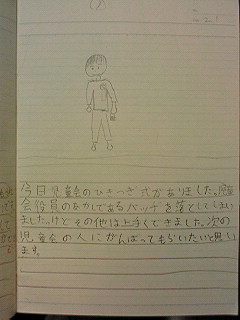 今日児童会のひきつぎ式がありました。児童
会役員のあかしであるバッチを落としてしまい
ましたけどその他は上手くできました。次の
児童会の人にがんばってもらいたいと思い
ます。